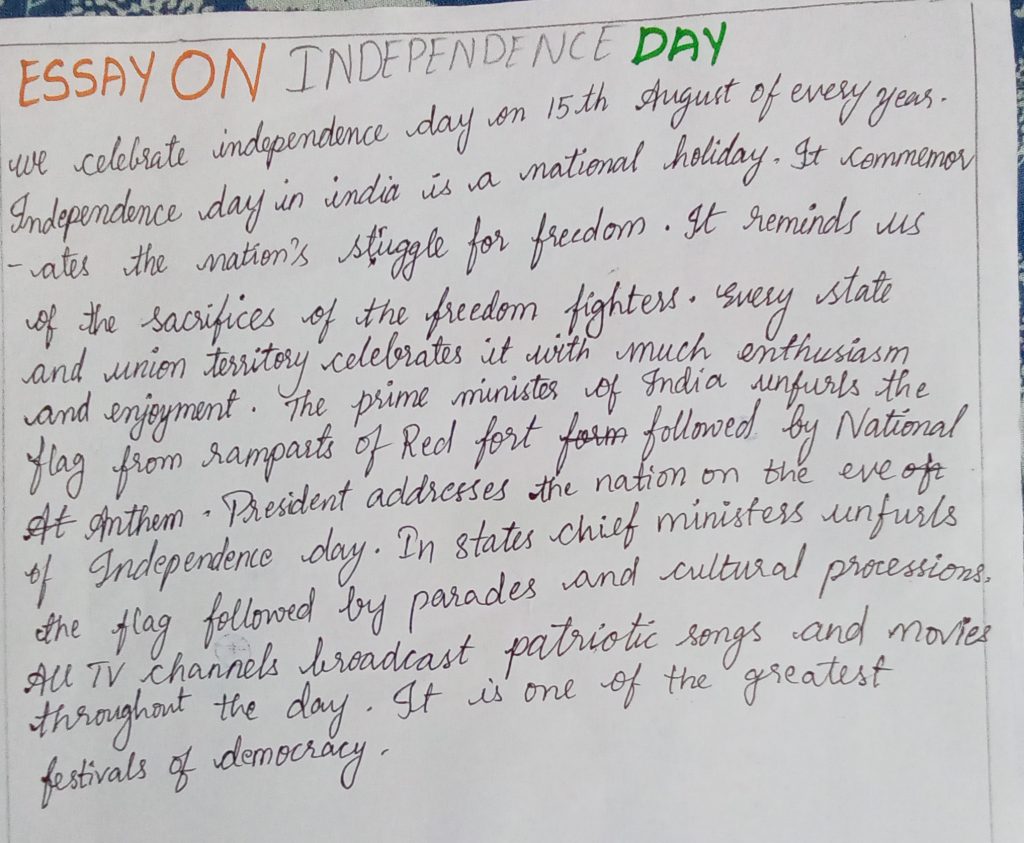 ESSAY ON INDEPENDENCE DAY
we celebrate independence day on 15th August of every year.
Independence day in india is a national holiday. It commemor
-ates the nation's struggle for freedom. It reminds us
of the sacrifices of the freedom fighters. Every state
and union territory celebrates it with much enthusiasm
and enjoyment. The prime minister of India unfurls the
flag from ramparts of Red fort form followed by National
At Anthem. President addresses the nation on the eve oft
of Independence day. In states chief ministers unfurls
the flag followed by parades and cultural processions.
All TV channels broadcast patriotic songs and movies
throughout the day. It is one of the greatest
festivals of democracy.